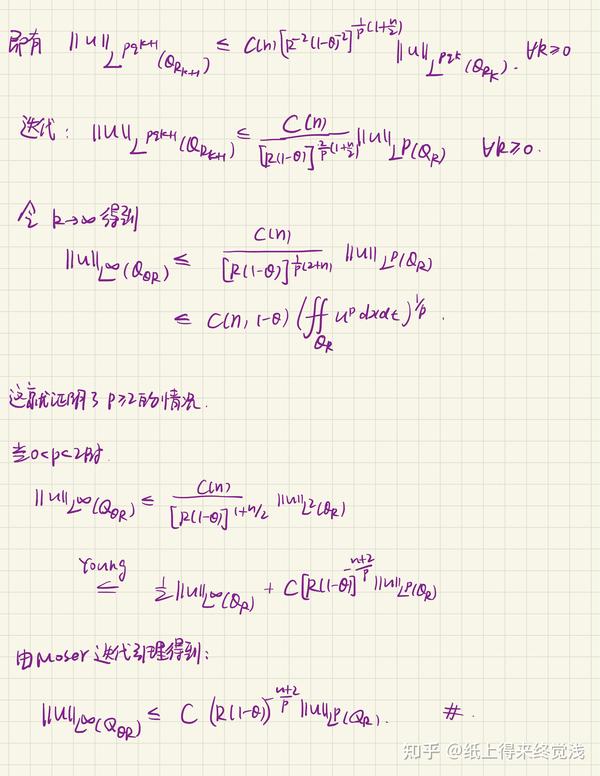 即有 ||u||_{L^{pq^{k+1}}(Q_{R_{k+1}})} ≤ C(n)[R^{-2}(1-θ)^{-2}]^{\frac{1}{p}(1+\frac{n}{2})} ||u||_{L^{pq^k}(Q_{R_k})}. ∀k≥0
迭代: ||u||_{L^{pq^{k+1}}(Q_{R_{k+1}})} ≤ \frac{C(n)}{[R(1-θ)]^{\frac{2}{p}(1+\frac{n}{2})}} ||u||_{L^p(Q_R)} ∀k≥0.
令 k→∞ 得到
||u||_{L^∞(Q_{θR})} ≤ \frac{C(n)}{[R(1-θ)]^{\frac{1}{p}(2+n)}} ||u||_{L^p(Q_R)}
≤ C(n, 1-θ) (∬_{Q_R} u^p dxdt)^{1/p}.
这就证明了 p≥2的情况.
当0<p<2时.
||u||_{L^∞(Q_{θR})} ≤ \frac{C(n)}{[R(1-θ)]^{1+n/2}} ||u||_{L^2(Q_R)}
Young ≤ \frac{1}{2}||u||_{L^∞(Q_R)} + C[R(1-θ)]^{-\frac{n+2}{p}} ||u||_{L^p(Q_R)}
由Moser迭代引理得到:
||u||_{L^∞(Q_{θR})} ≤ C (R(1-θ))^{-\frac{n+2}{p}} ||u||_{L^p(Q_R)}. #.
知乎 @纸上得来终觉浅